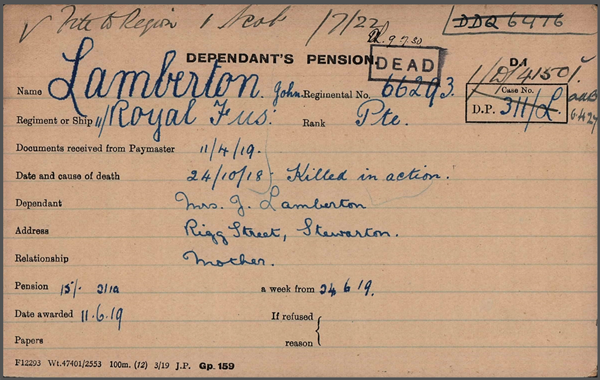 √ File to Region 1 Scot 17/22 DDQ 6476
9.7.30
DEPENDANT'S PENSION. DEAD D.1
1/D/4150
Name Lamberton. John. Regimental No. 66293 Case No.
D.P. 311/L.
Regiment or Ship 11/Royal Fus: Rank Pte.
Documents received from Paymaster 11/4/19.
Date and cause of death 24/10/18 - Killed in action.
Dependant Mrs. J. Lamberton
Address Rigg Street, Stewarton.
Relationship Mother.
Pension 15/- a week from 24 6 19.
Date awarded 11.6.19 If refused
Papers reason
F12293 Wt.47401/2553 100m. (12) 3/19 J.P. Gp. 159